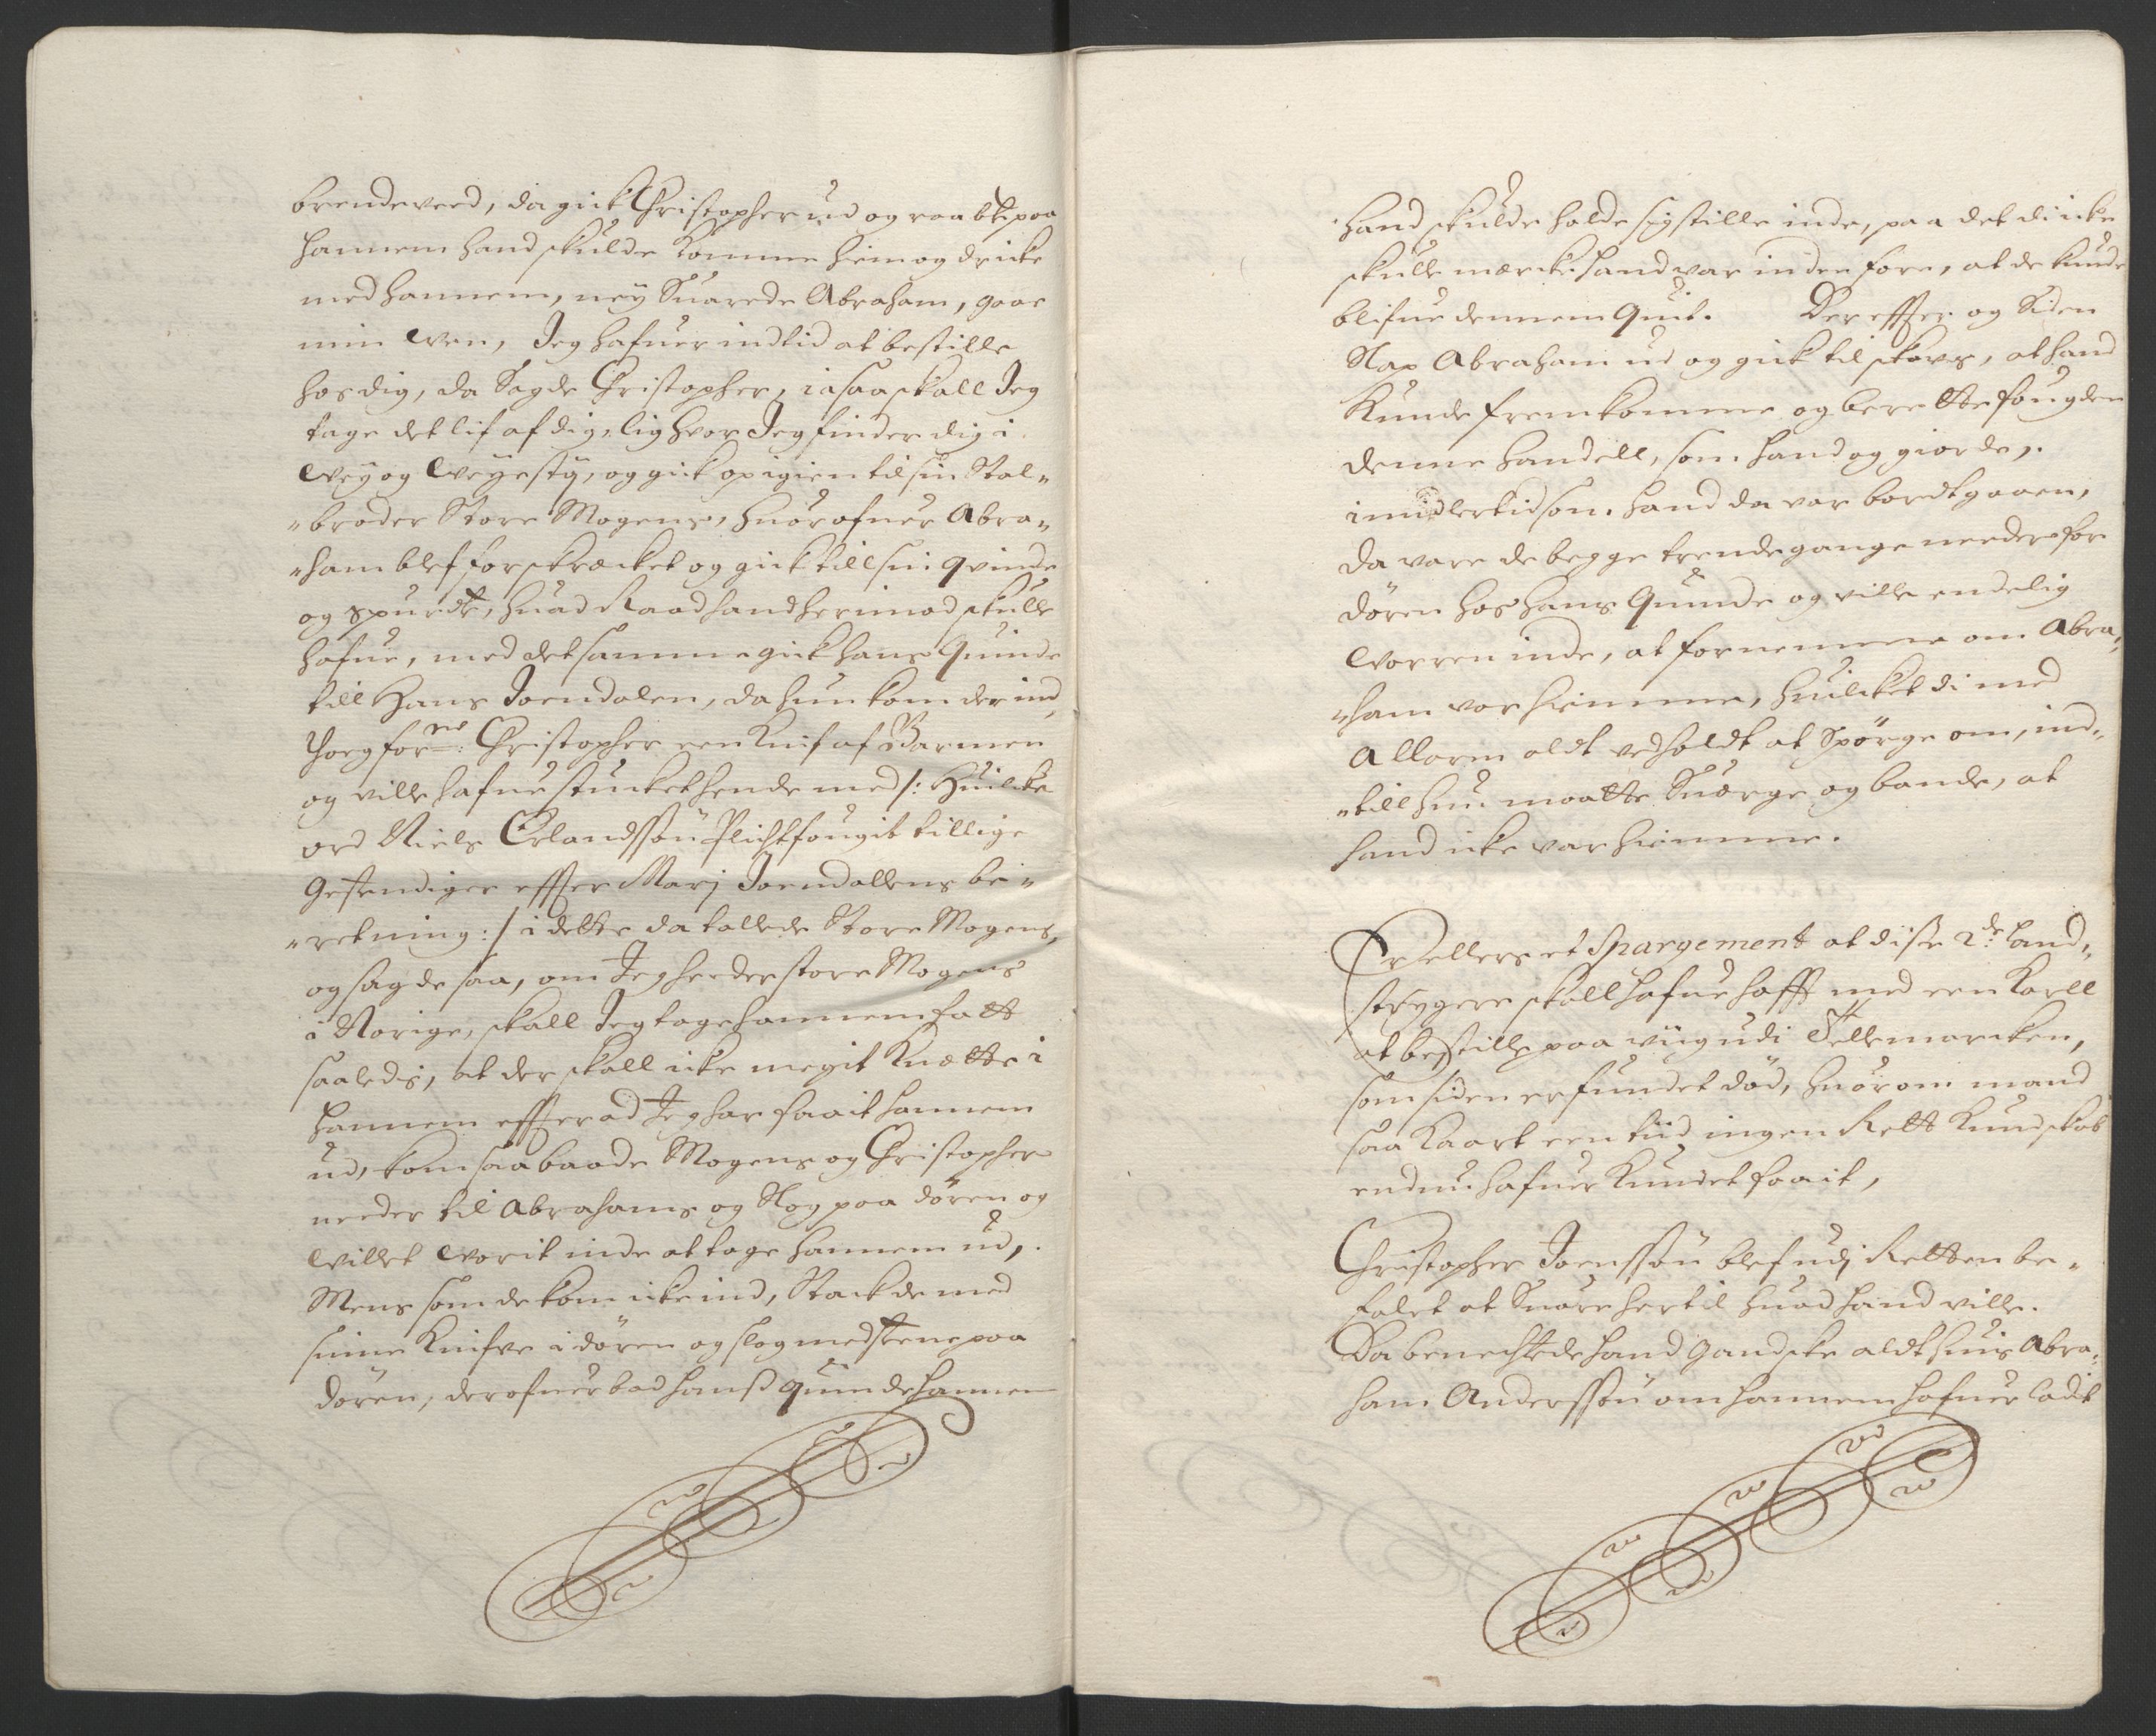 brendeveed, da gick Christopher ud og raabte paa
hannem hand skulde komme hiem og dricke
med hannem, ney Suarede Abraham, gaae
min wen, Jeg hafuer indtid at bestille
hos dig, da Sagde Christopher, ia saa skall Jeg
tage det lif af dig, lig hvor Jeg finder dig i
wey og weyesty, og gick op igien til sin Stal„
„broder Store Mogens, huorofuer Abra„
„ham blef forskrecket og gick till sin qvinde
og spurdte, huad Raad hand herimod skulle
hafue, med det samme gick hans Quinde
till Hans Joendalen, da hun kom der ind,
Thoeg forne: Christopher een Knif af Barmen
og ville hafue stucket hende med /: Huilcke
ord Niels Erlandssøn Plichtfougit tillige
Gestendiger effter Marj Joendallens be„
„retning :/ i dette da tallede Store Mogens,
og sagde saa, om Jeg heeder store Mogens
i Norige, skall Jeg tage hannem fatt
saaledis, at der skall icke megit Knætte i
hannem efterad Jeg har faait hannem
ud, kom saa baade Mogens og Christopher
needer til Abrahams og Slog paa døren og
willet worit inde at tage hannem ud,
Mens som de kom icke ind, Stack de med
sinne Knifve i døren og slog med Stene paa
døren, derofuer bad hanß quinde hannem
hand skulde holde sig stille inde, paa det di icke
skulle mercke hand var inden fore, at de kunde
blifue dennem Quit. Der effter og Siden
Slap Abraham ud og gick til skovs, at hand
Kunde fremkomme og berette fougden
denne handell, som hand og giorde,
imidlertid som hand da var bordtgaaen,
da vare de begge trende gange needer for
døren hos hans Quinde og ville endelig
worren inde, at fornemme om Abra„
„ham var hiemme, huilcket di med
Allarm aldt vedholdt at Spørge om, ind„
„till hun maatte Suerge og bande, at
hand icke var hiemme.
Er ellers et Spargement at disse 2de land„
strygere skall hafue hafft med een Karll
at bestille paa wiig udi Tellemarcken,
som siden er fundet død, huorom mand
saa Kaart een tiid ingen Rett Kundskab
endnu hafuer Kundet faait,
Christopher Joenssøn blef udj Retten be„
falet at Suare hertil huad hand ville.
Da benechtede hand Gandske aldt huis Abra„
ham Anderssøn om hannem hafuer ladit